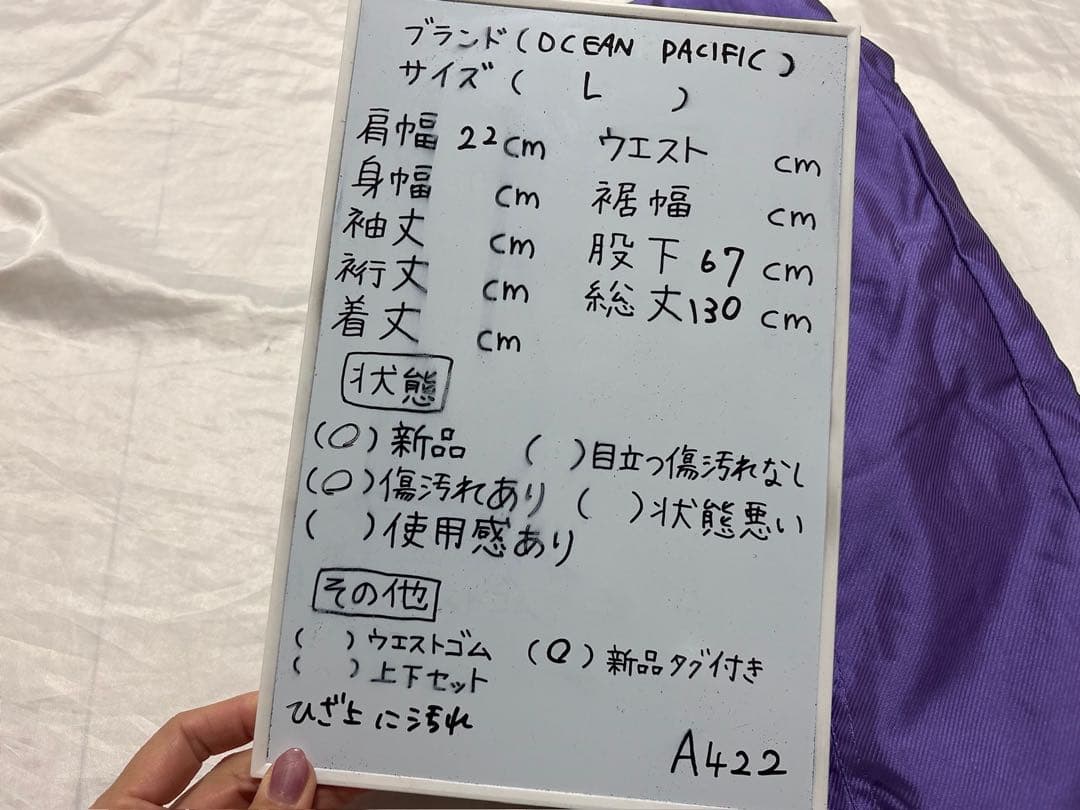 ブランド(OCEAN PACIFIC)
サイズ( L )
肩幅 22cm
身幅 cm
袖丈 cm
裄丈 cm
着丈 cm
ウエスト cm
裾幅 cm
股下 67 cm
総丈130 cm
状態
(○)新品 ( )目立つ傷汚れなし
(○)傷汚れあり ( )状態悪い
( )使用感あり
その他
( )ウエストゴム (○)新品タグ付き
( )上下セット
ひざ上に汚れ
A422